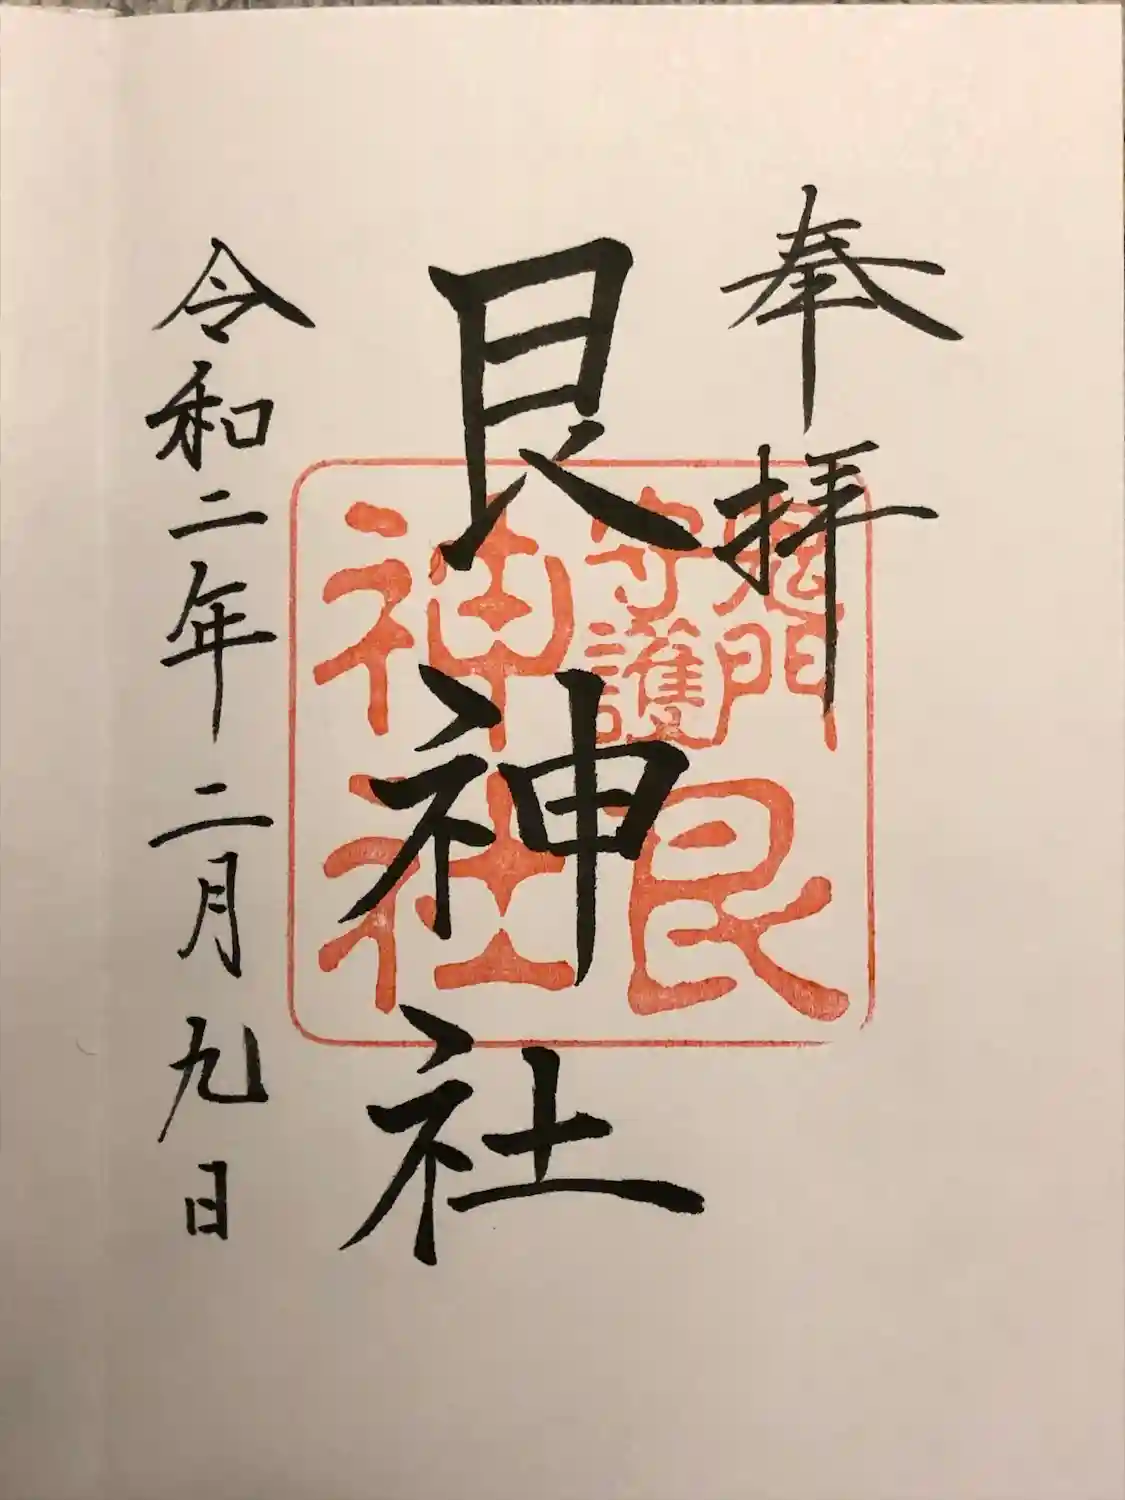 奉拝
鬼門
守護
艮
神社
艮神社
令和二年二月九日